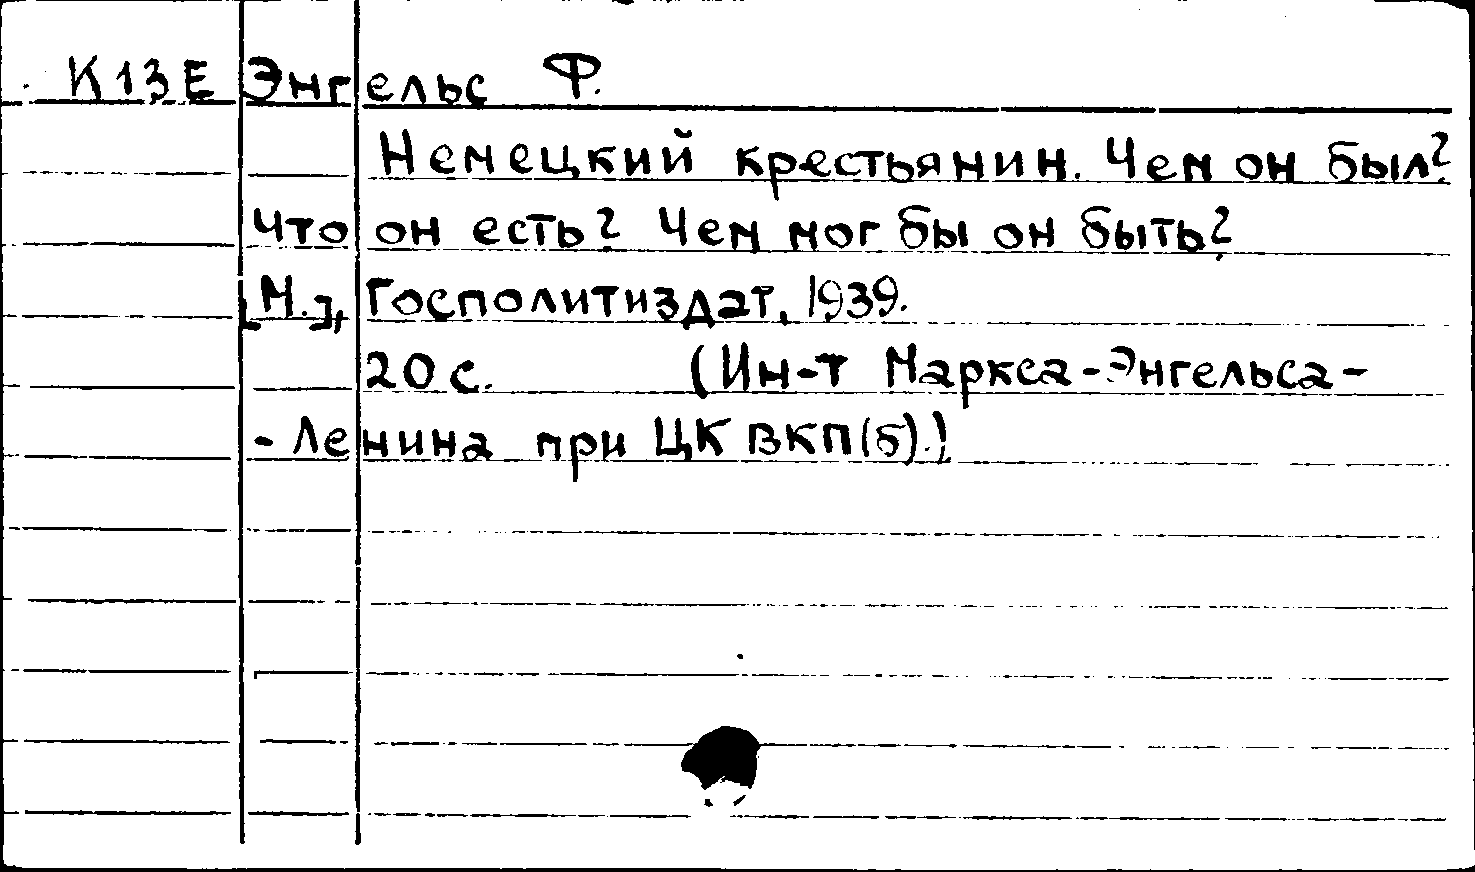 К13Е Энгельс Ф.
Немецкий крестьянин. Чем он был?
Что он есть? Чем мог бы он быть?
[М.], Госполитиздат, 1939.
20 с. (Ин-т Маркса-Энгельса-
-Ленина при ЦК ВКП(б).)